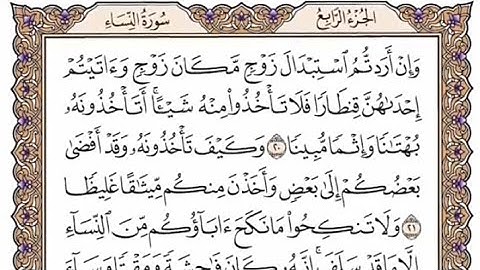 الجُزْءُ الرَّابِعُ سُورَةُ النِّسَاءِ
وَإِنْ أَرَدتُّمُ ٱسْتِبْدَالَ زَوْجٍ مَّكَانَ زَوْجٍ وَءَاتَيْتُمْ
إِحْدَىٰهُنَّ قِنطَارًا فَلَا تَأْخُذُوا۟ مِنْهُ شَيْـًٔا ۚ أَتَأْخُذُونَهُۥ
بُهْتَـٰنًا وَإِثْمًا مُّبِينًا ٢٠ وَكَيْفَ تَأْخُذُونَهُۥ وَقَدْ أَفْضَىٰ
بَعْضُكُمْ إِلَىٰ بَعْضٍ وَأَخَذْنَ مِنكُم مِّيثَـٰقًا غَلِيظًا
٢١ وَلَا تَنكِحُوا۟ مَا نَكَحَ ءَابَآؤُكُم مِّنَ ٱلنِّسَآءِ
إِلَّا مَا قَدْ سَلَفَ ۚ إِنَّهُۥ كَانَ فَـٰحِشَةً وَمَقْتًا وَسَآءَ